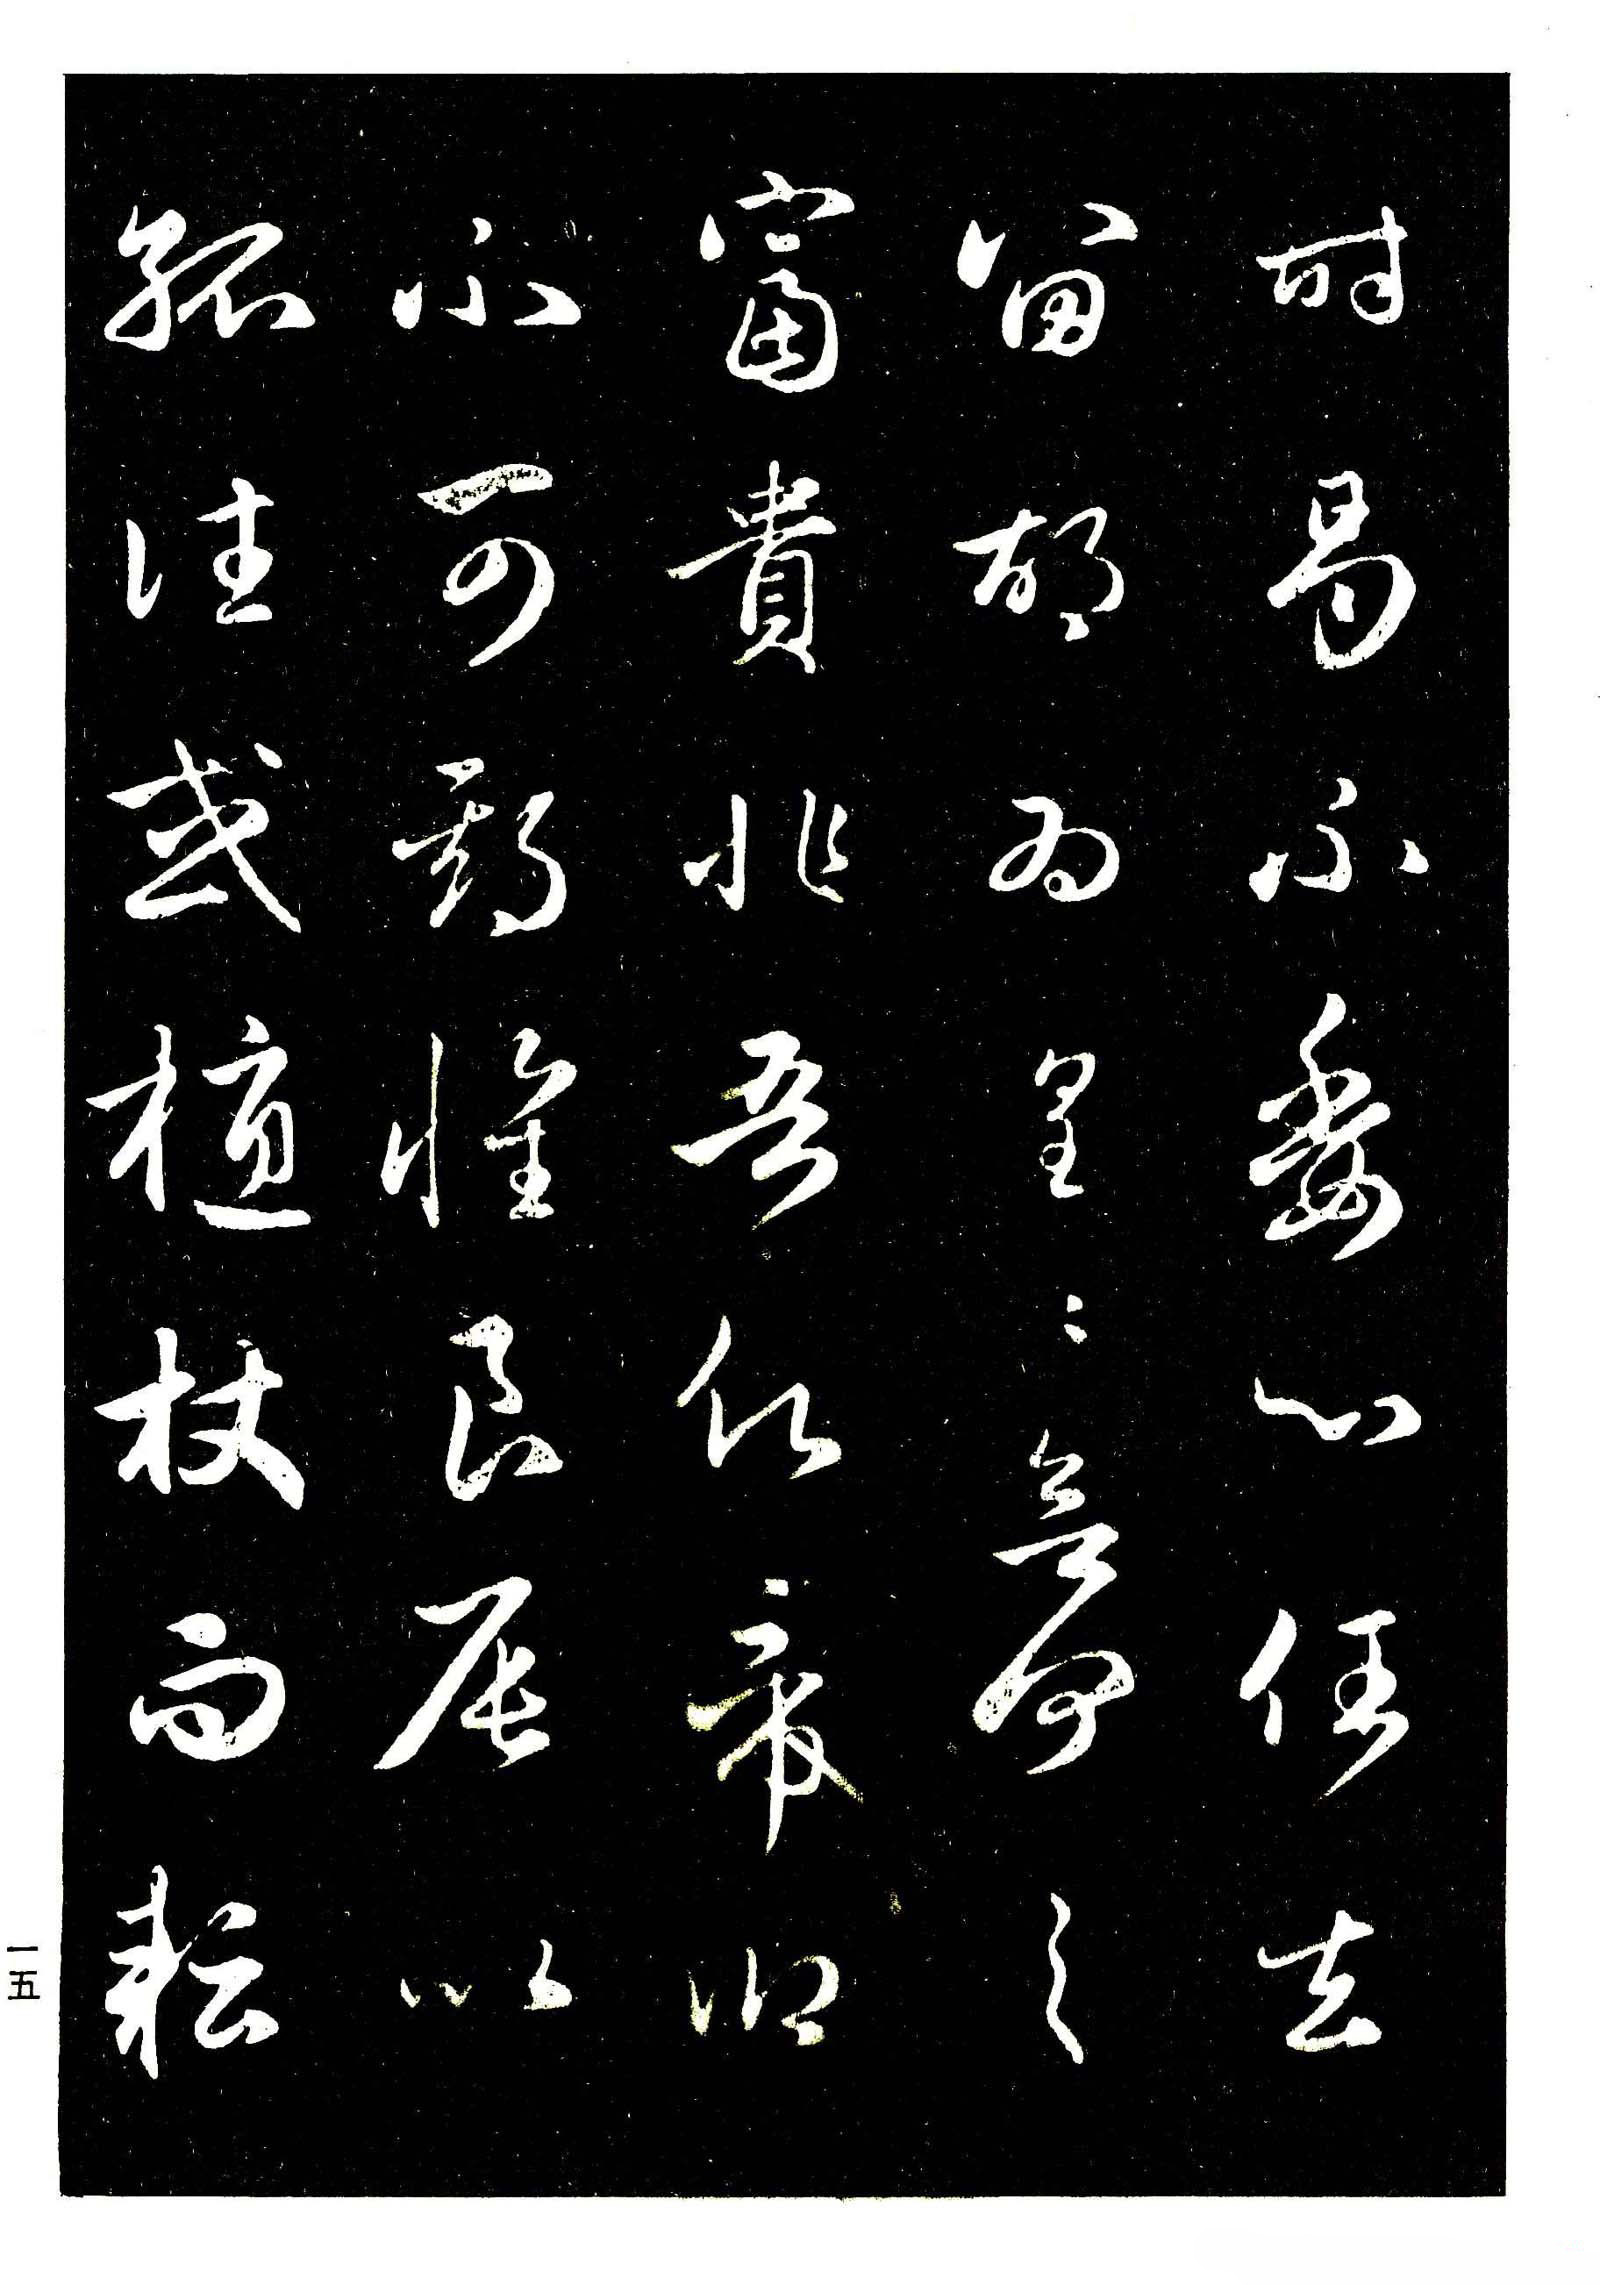 時曷不委心任去
留胡為皇〻兮何之
富貴非吾願帝鄉
不可期懷良辰以
孤往或植杖而耘
一五